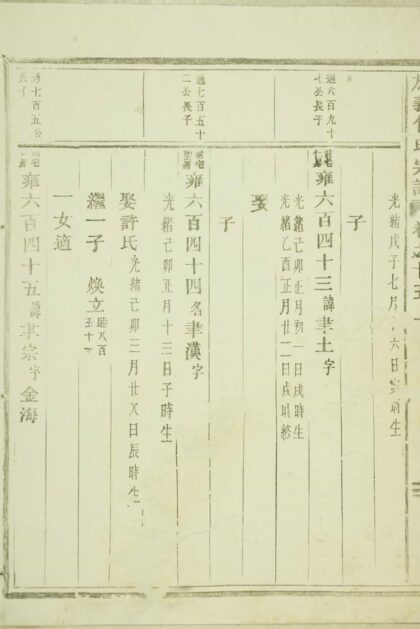 光緒戊子七月 六日 時生
子
通六百九十
七公長子
前宅
雍六百四十三諱聿土字
光緒己卯正月初一日戌時生
光緒乙酉正月廿二日戌時終
娶
子
通七百五十
二公長子
前宅
雍六百四十四名聿漢字
光緒己卯正月十三日子時生
娶許氏光緒己卯三月廿又日辰時生
繼一子 煥立睦八百
五十一
一女適
通七百五公
長子
前宅
雍六百四十五諱聿宗字金海